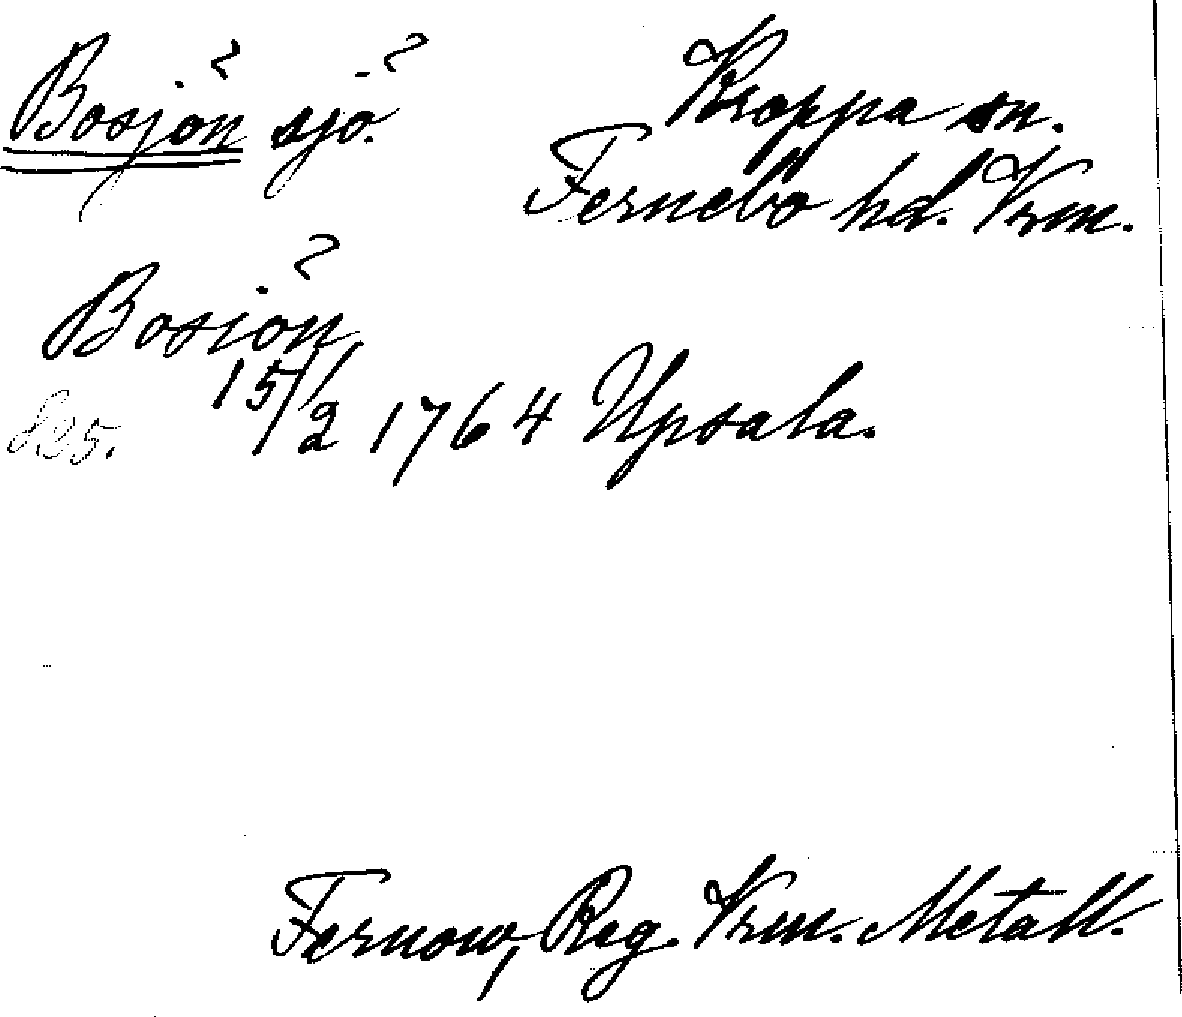 Bosjön sjö.
Kroppa sn.
Fernebo hd. Vrm.
Bosiön
15/2 1764 Upsala.
Fernow, Reg. Vrm. Metall.